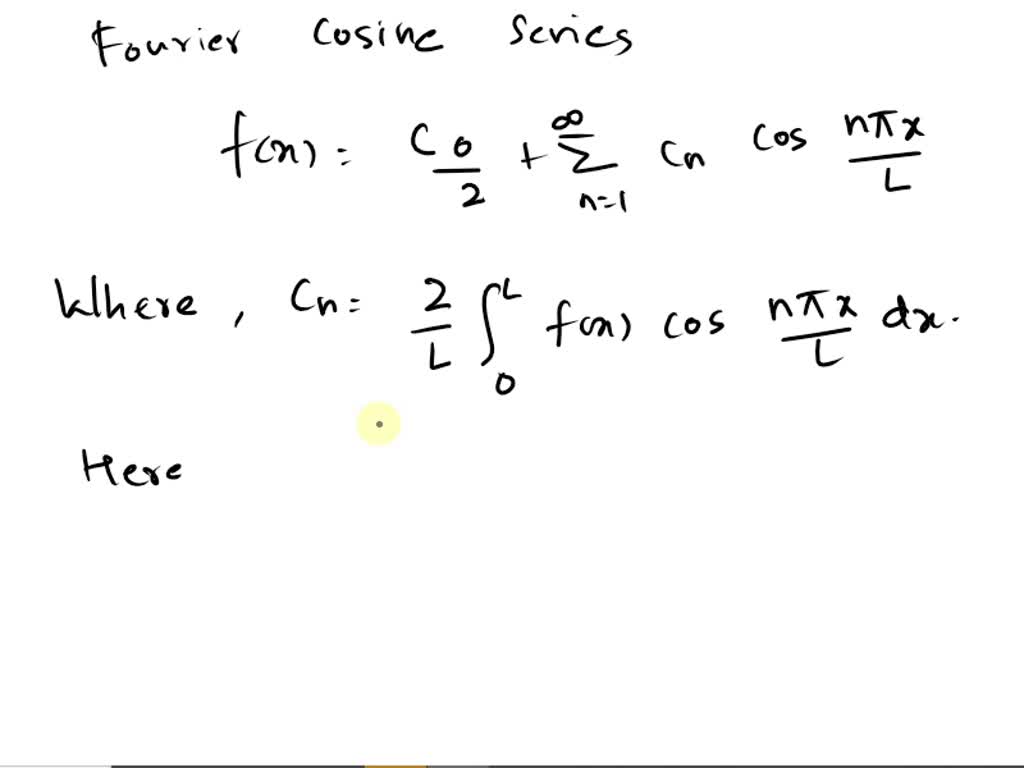 Fourier Cosine Series
f(x) = C0/2 + ∞Σn=1 Cn cos nπx/L
Where, Cn = 2/L ∫0^L f(x) cos nπx/L dx.
Here